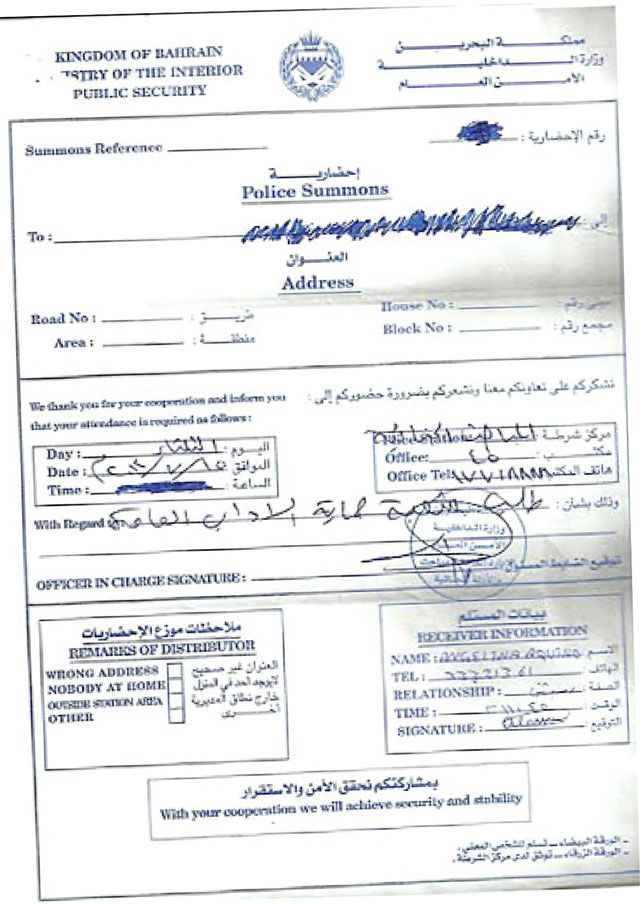 KINGDOM OF BAHRAIN
STRY OF THE INTERIOR
PUBLIC SECURITY
مملكة البحرين
وزارة الداخلية
الأمن العام
Summons Reference
رقم الإحضارية :
إحضارية
Police Summons
To :
إلى :
العنوان
Address
Road No :
طريق :
House No :
مبنى رقم :
Area :
منطقة :
Block No :
مجمع رقم :
We thank you for your cooperation and inform you
that your attendance is required as follows :
نشكركم على تعاونكم معنا ونشعركم بضرورة حضوركم إلى :
Day :
الثلاثاء
اليوم :
Date :
الموافق :
Time :
الساعة :
Police Station
مركز شرطة :
Office:
٤٥
مكتب :
Office Tel
هاتف المكتب
With Regard to
حماية الاداب العامة
وذلك بشأن :
وزارة الداخلية
OFFICER IN CHARGE SIGNATURE :
توقيع الضابط المسئول
ملاحظات موزع الإحضاريات
REMARKS OF DISTRIBUTOR
WRONG ADDRESS
العنوان غير صحيح
NOBODY AT HOME
لايوجد أحد في المنزل
OUTSIDE STATION AREA
خارج نطاق المديرية
OTHER
أخرى
بيانات المستلم
RECEIVER INFORMATION
NAME : ANGELINA AQUINO
الاسم
TEL :
الهاتف :
RELATIONSHIP :
الصفة :
TIME :
الوقت :
SIGNATURE :
التوقيع :
بمشاركتكم نحقق الأمن والاستقرار
With your cooperation we will achieve security and stability
- الورقة البيضاء ــ تسلم للشخص المعني .
- الورقة الزرقاء ــ توثق لدى مركز الشرطة .